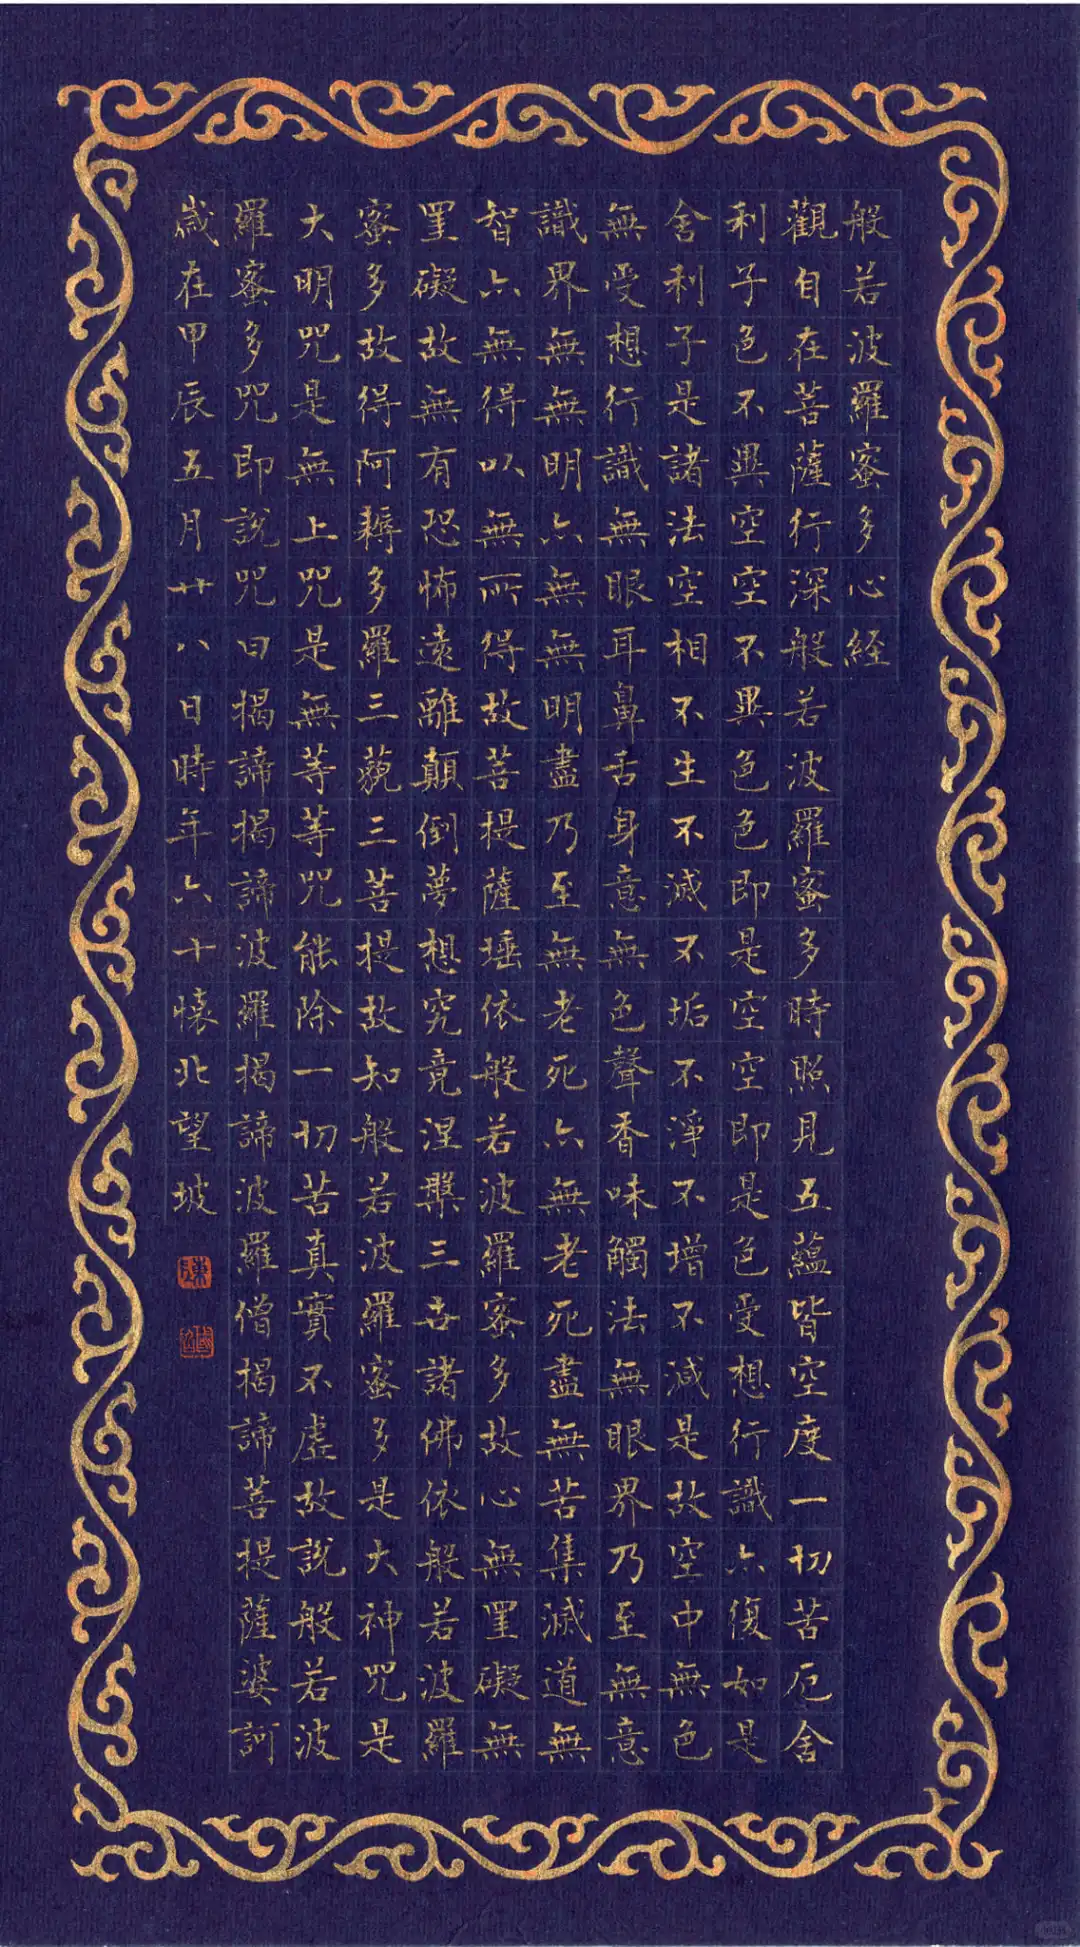 般若波羅蜜多心経
觀自在菩薩行深般若波羅蜜多時照見五蘊皆空度一切苦厄舍
利子色不異空空不異色色即是空空即是色受想行識亦復如是
舍利子是諸法空相不生不滅不垢不淨不增不減是故空中無色
無受想行識無眼耳鼻舌身意無色聲香味觸法無眼界乃至無意
識界無無明亦無無明盡乃至無老死亦無老死盡無苦集滅道無
智亦無得以無所得故菩提薩埵依般若波羅蜜多故心無罣礙無
罣礙故無有恐怖遠離顛倒夢想究竟涅槃三世諸佛依般若波羅
蜜多故得阿耨多羅三藐三菩提故知般若波羅蜜多是大神咒是
大明咒是無上咒是無等等咒能除一切苦真實不虛故說般若波
羅蜜多咒即說咒曰揭諦揭諦波羅揭諦波羅僧揭諦菩提薩婆訶
歲在甲辰五月廿八日時年六十懷北望坡
陳